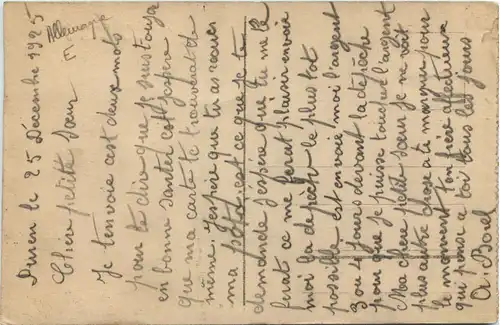 Allemagne
E
Duren le 25 Décembre 1925
Chère petite sœur
Je t'envoie cest deux mots
pour te dire que je suis toujours
en bonne santér est j'espère
que ma carte te trouverat de
même. J'espère que tu as reçuer
ma est ce que je te
demande j'espère que tu me le
ferat ce me ferat plaisir envoie
moi la depèche le plus tot
possible est envoie moi l'argent
3 ou 4 jours devant la dépêche
pour que je puisse touché l'argent
Ma chère petite sœur je ne voit
plus autre chose a te marquer pour
le moment ton frère affectueux
qui pense a toi tous les jours
A. Borel